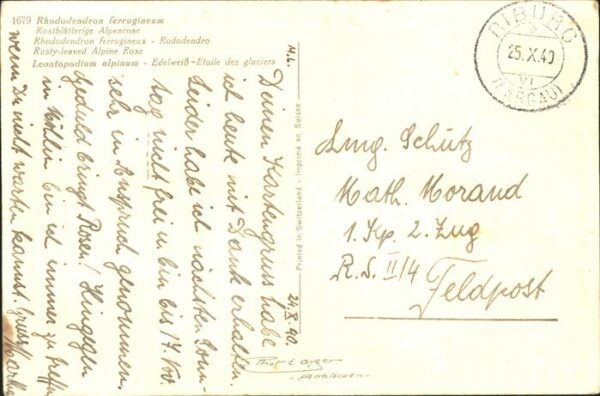 1679 Rhododendron ferrugineum
Rostblätterige Alpenrose
Rhododendron ferrugineux - Rododendro
Rusty-leaved Alpine Rose
Leontopodium alpinum - Edelweiß - Etoile des glaciers
DIBURG
25.X.40
VI
(AARGAU)
Printed in Switzerland - Imprimé en Suisse
24. X. 40.
M.L.
Deinen Kartengruss habe
ich heute mit Dank erhalten.
Leider habe ich nächsten Sonn-
tag nicht frei u. bin bis 17. Nov.
sehr in Anspruch genommen,
Geduld bringt Rosen! Hingegen
in Möhlin bin ich immer zu treffen
wenn Du nicht warten kannst. Gruss
Mord. Schütz
Math. Morand
1. Kp. 2. Zug
R.S. II/4
Feldpost